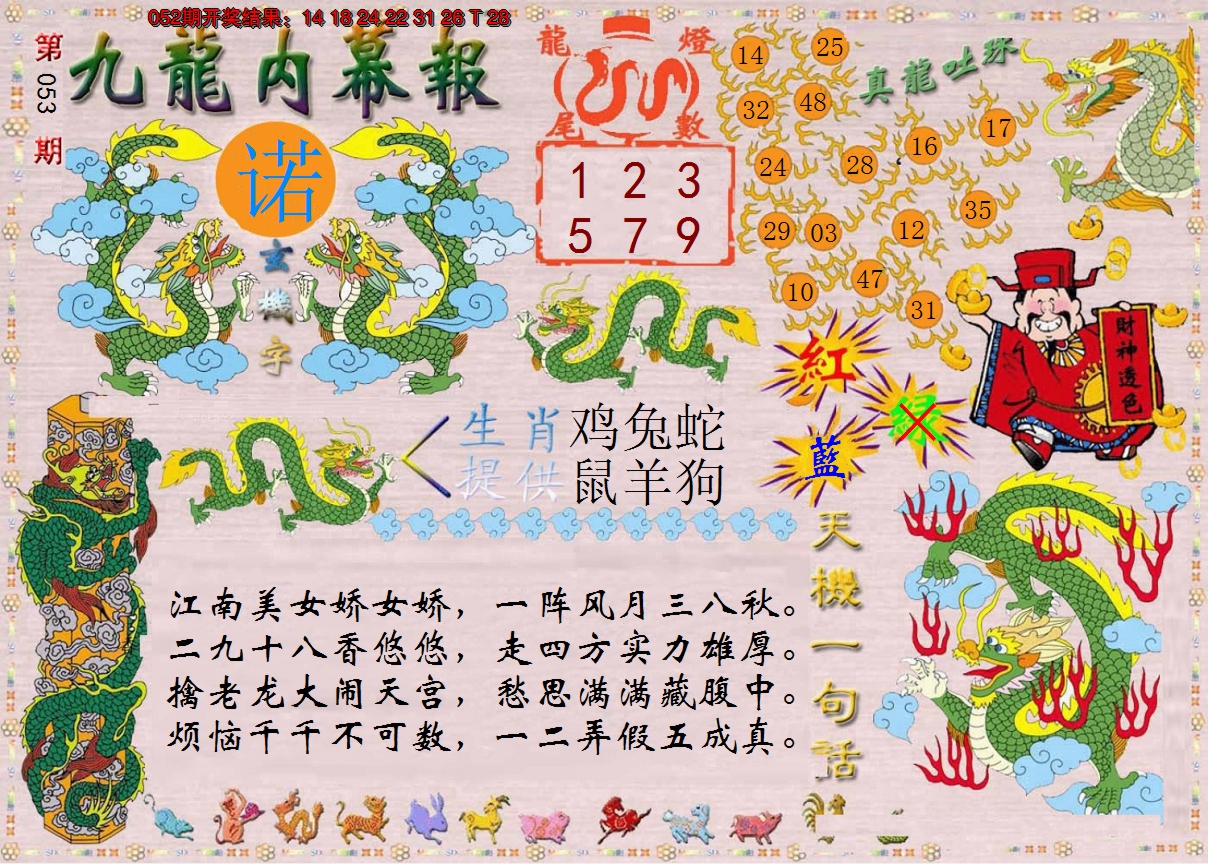 052期开奖结果：14 18 24 22 31 26 T 28
第053期
九龍内幕報
诺
玄機字
龍燈尾數
1 2 3
5 7 9
真龍吐珠
14 25
32 48
24 28 16 17
29 03 12 35
10 47 31
財神透色
紅
绿
藍
生肖提供
鸡兔蛇
鼠羊狗
天機一句話
江南美女娇女娇，一阵风月三八秋。
二九十八香悠悠，走四方实力雄厚。
擒老龙大闹天宫，愁思满满藏腹中。
烦恼千千不可数，一二弄假五成真。